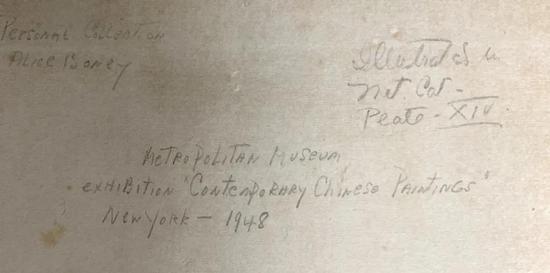 Personal Collection
Alice Boney
Illustrated in
Met. Cat -
Plate - XIV.
Metropolitan Museum
exhibition "Contemporary Chinese Paintings"
New York - 1948